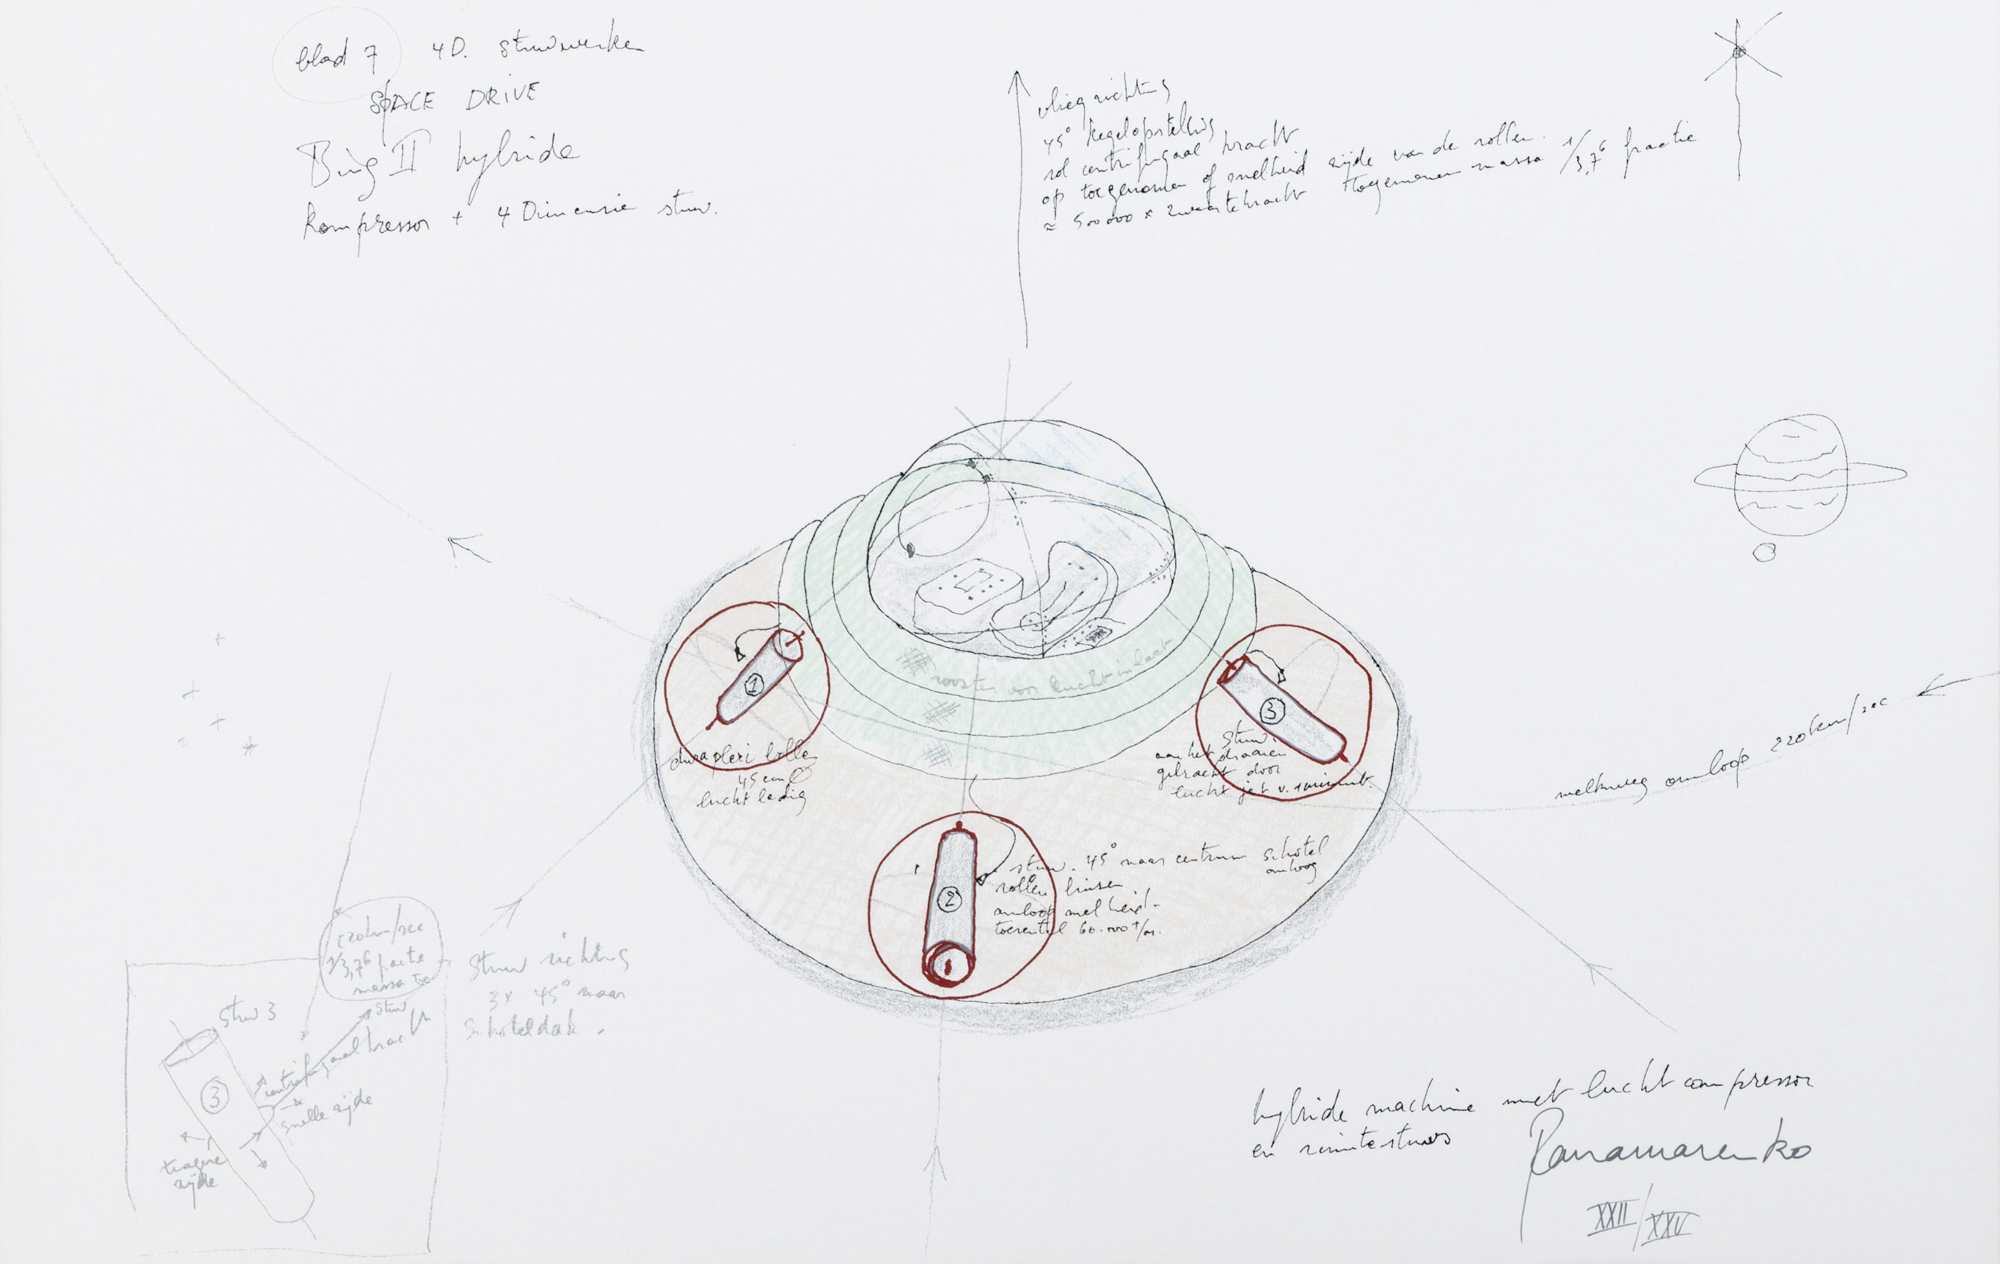 blad 7 4D. stuwwerken
SPACE DRIVE
Bing II hybride
kompressor + 4 Dimensie stuw.
vliegrichting
45° kegelopstelling
rol centrifugaal kracht
op toegenomen of snelheid zijde van de rollen.
≈ 500000 x zwaartekracht toegenomen massa 1/3,7⁶ fractie
rooster voor luchtinlaat
1
3
2
duraplexi rollen
45 cm
lucht ledig
stuw.
aan het draaien
gebracht door
lucht jet v.
stuw. 45° naar centrum schotel
omloog
rollen binnen
omloop snelheid.
toerental 60.000 t/m.
melkweg omloop 220km/sec
220km/sec
1/3,7⁶ fractie
massa toe
stuw
stuw 3
3
centrifugaal kracht
snelle zijde
tragere
zijde
stuw richting
3x 45° naar
schoteldak.
hybride machine met lucht compressor
en ruimtestuws
Panamarenko
XXII/XXV